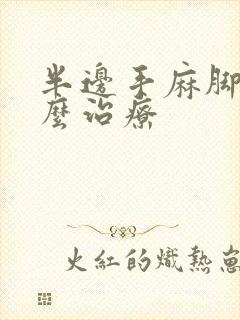 半邊手麻腳
麼治療
火紅的熾熱